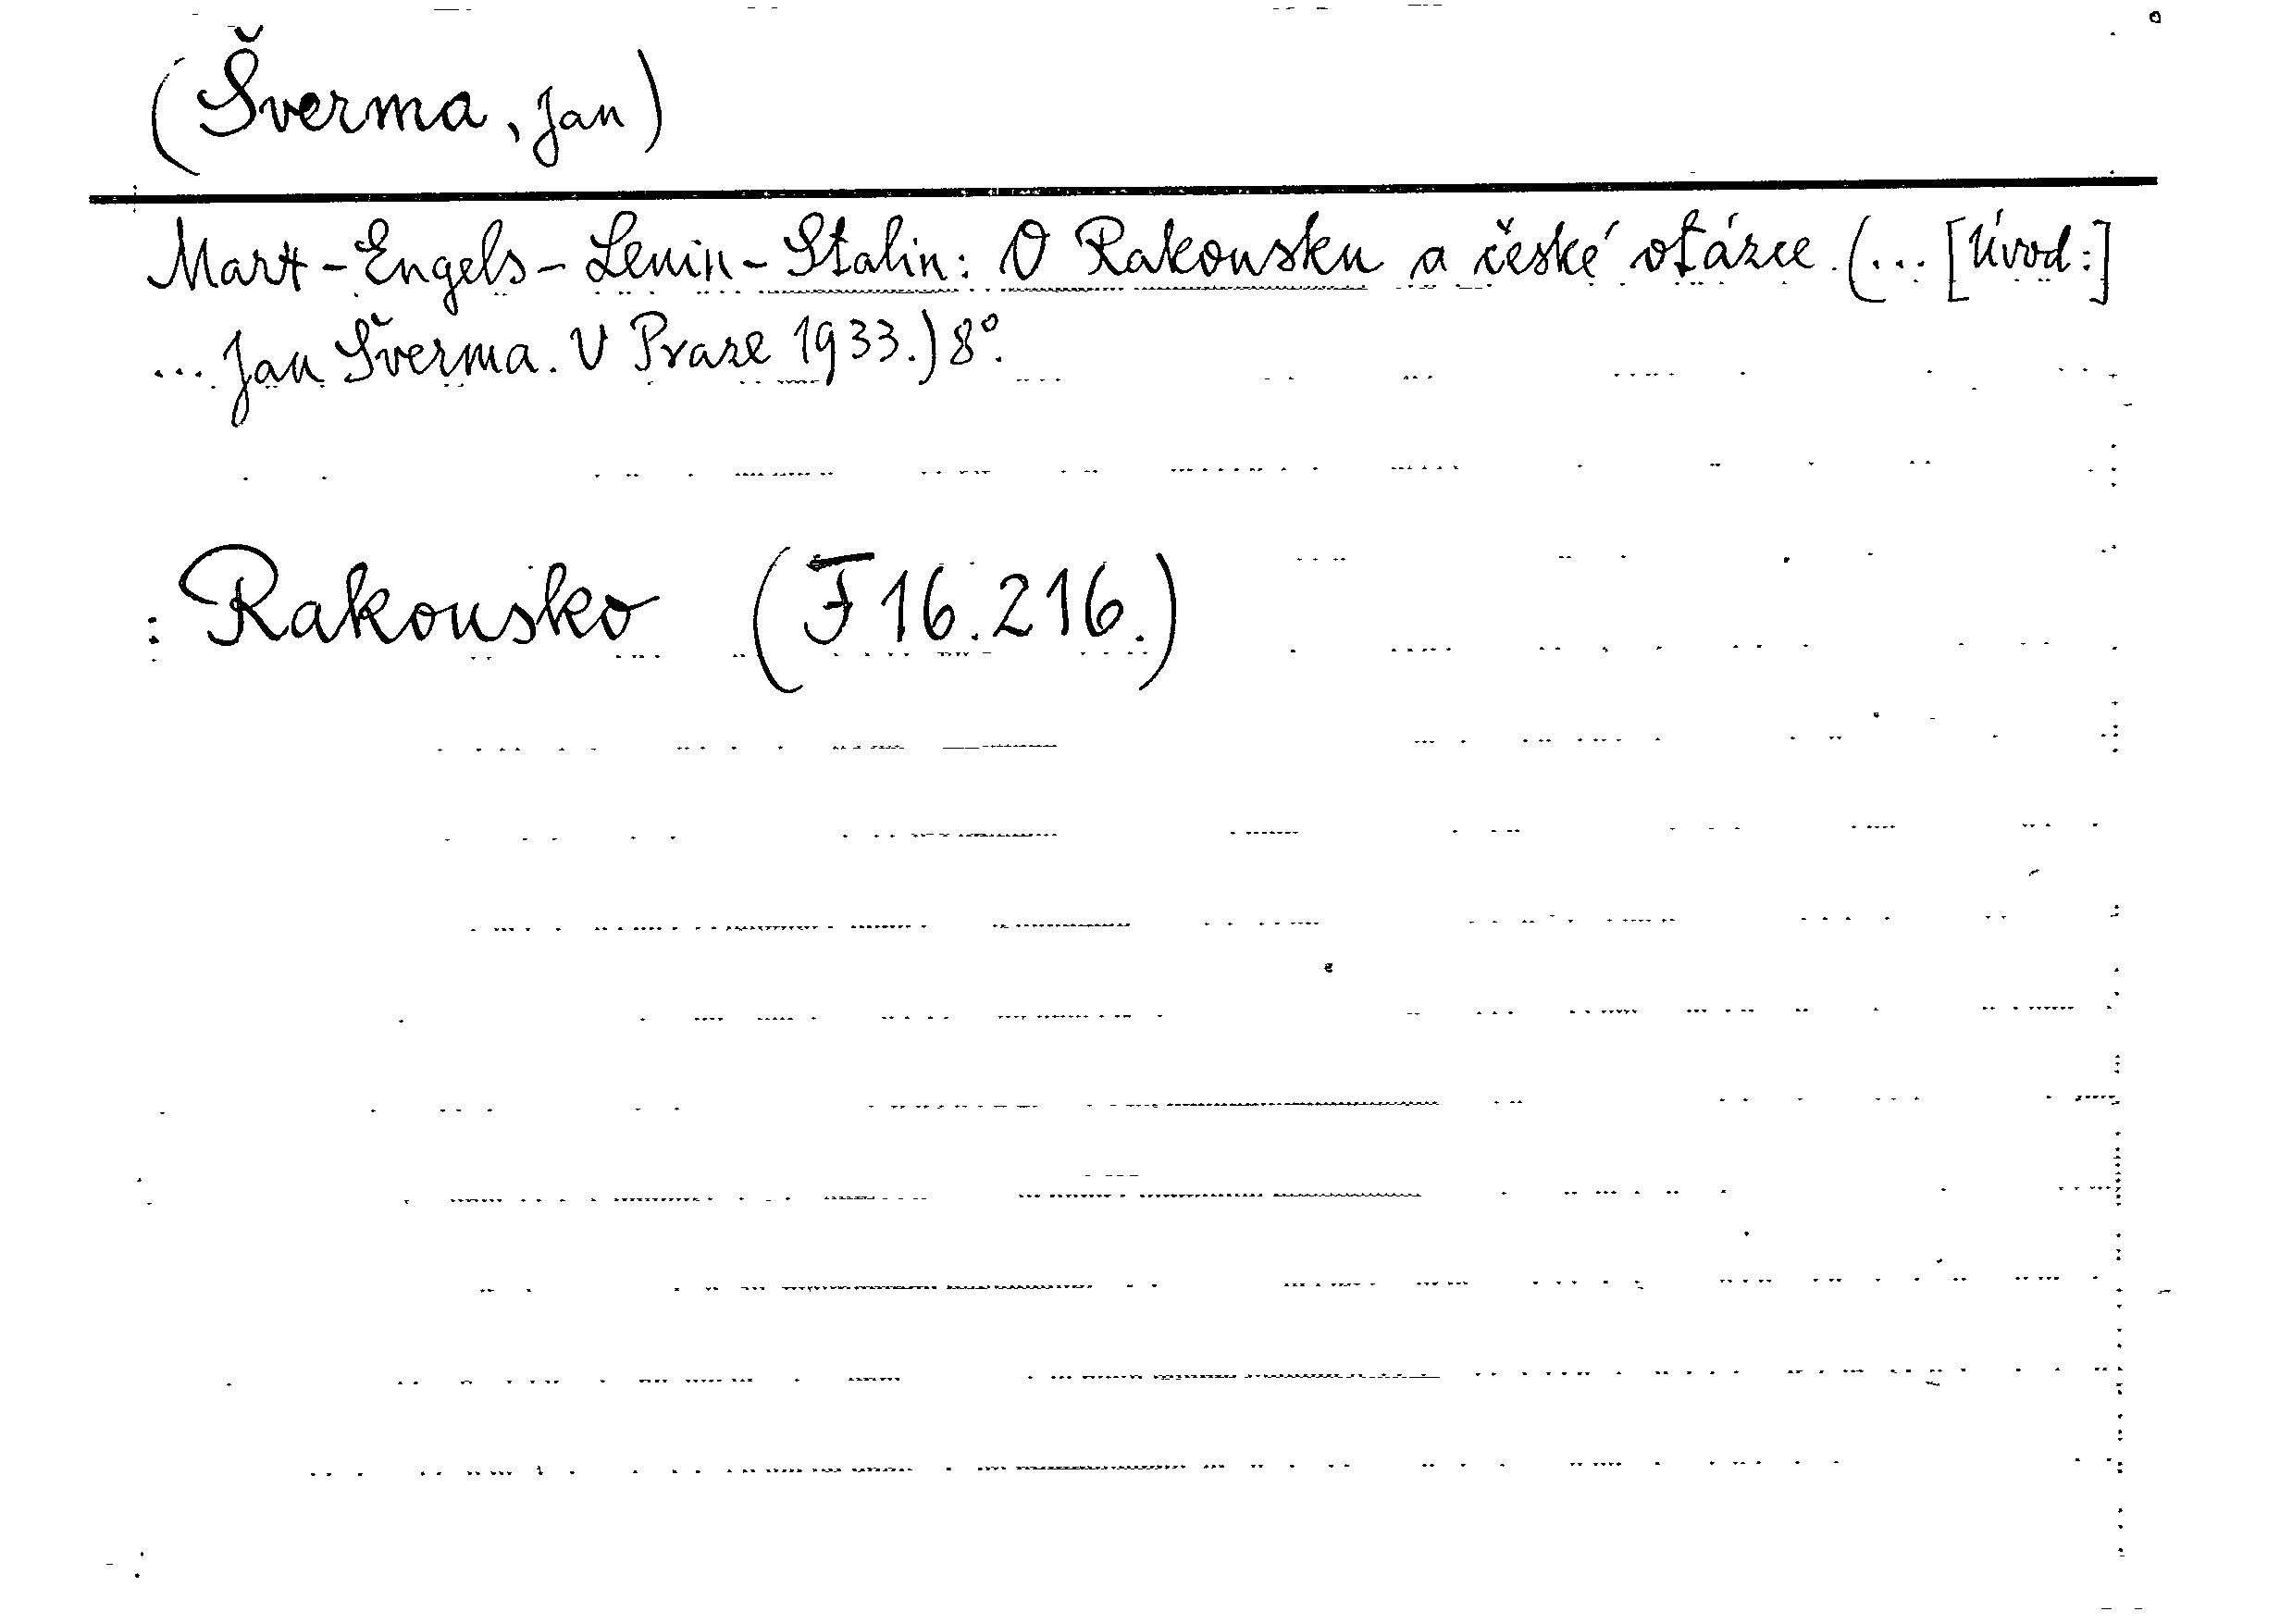 (Šverma, Jan)
Marx-Engels-Lenin-Stalin: O Rakousku a české otázce. (... [Úvod:]
... Jan Šverma. V Praze 1933.) 8°.
: Rakousko (F 16.216.)